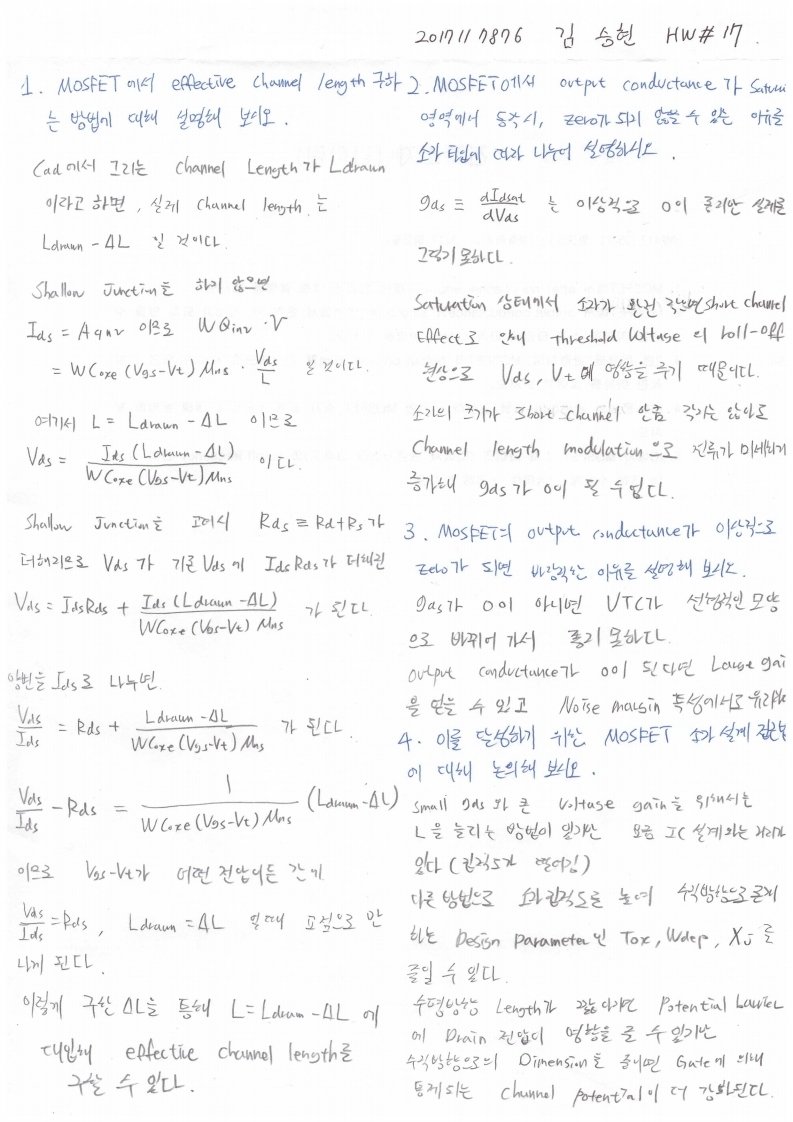 2017117876 김 승현 HW#17.
1. MOSFET에서 effective channel length 구하
는 방법에 대해 설명해 보시오.
Cad에서 그리는 Channel Length가 Ldrawn
이라고 하면, 실제 channel length는
Ldrawn - ΔL 일 것이다.
Shallow Junction을 하기 않으면
Ids = A q n v 이므로 WQinv · V
= WCoxe (Vgs-Vt) Mns · Vds/L 일 것이다.
여기서 L = Ldrawn - ΔL 이므로
Vds = Ids (Ldrawn - ΔL) / WCoxe (Vgs-Vt) Mns 이다.
Shallow Junction을 Rds ≡ Rd+Rs가
더해지므로 Vds가 기존 Vds에 IdsRds가 더해진
Vds = IdsRds + Ids (Ldrawn - ΔL) / WCoxe (Vgs-Vt) Mns 가 된다.
양변을 Ids로 나누면.
Vds/Ids = Rds + Ldrawn - ΔL / WCoxe (Vgs-Vt) Mns 가 된다.
Vds/Ids - Rds = 1 / WCoxe (Vgs-Vt) Mns (Ldrawn - ΔL)
이므로 Vgs-Vt가 어떤 전압이든 간에
Vds/Ids = Rds, Ldrawn = ΔL 일때 교점으로 만
나게 된다.
이렇게 구한 ΔL을 통해 L = Ldrawn - ΔL 에
대입해 effective channel length를
구할 수 있다.
2. MOSFET에서 output conductance가 Satur
영역에서 동작시, zero가 되지 않을 수 있는 이유를
소자 타입에 따라 나누어 설명하시오.
gds ≡ dIdsat/dVds 는 이상적으로 0이 좋지만 실제로
그렇지 못하다.
Saturation 상태에서 소자가 완전 작으면 short channel
Effect로 인해 threshold Voltage의 roll-off
현상으로 Vds, Vt에 영향을 주기 때문이다.
소자의 크기가 Short channel 만큼 작지는 않아도
Channel length modulation으로 전류가 미세하게
증가해 gds가 0이 될 수 없다.
3. MOSFET의 output conductance가 이상적으로
zero가 되면 바람직한 이유를 설명해 보시오.
gds가 0이 아니면 VTC가 선형적인 모양
으로 바뀌어 가서 좋지 못하다.
output conductance가 0이 된다면 Large gai
을 얻을 수 있고 Noise margin 특성에서도 유리하
4. 이를 달성하기 위한 MOSFET 소자 설계 접근법
에 대해 논의해 보시오.
Small gds와 큰 Voltage gain을 위해서는
L을 늘리는 방법이 있지만 요즘 IC 설계와는 거리가
있다 (집적도가 떨어짐)
다른 방법으로 소자 집적도를 높여 수직방향으로 존재
하는 Design parameter인 Tox, Wdep, Xj를
줄일 수 있다.
수평방향 Length가 짧아지면 Potential barrier
에 Drain 전압이 영향을 줄 수 있지만
수직방향으로의 Dimension을 줄이면 Gate에 의해
통제되는 Channel potential이 더 강화된다.